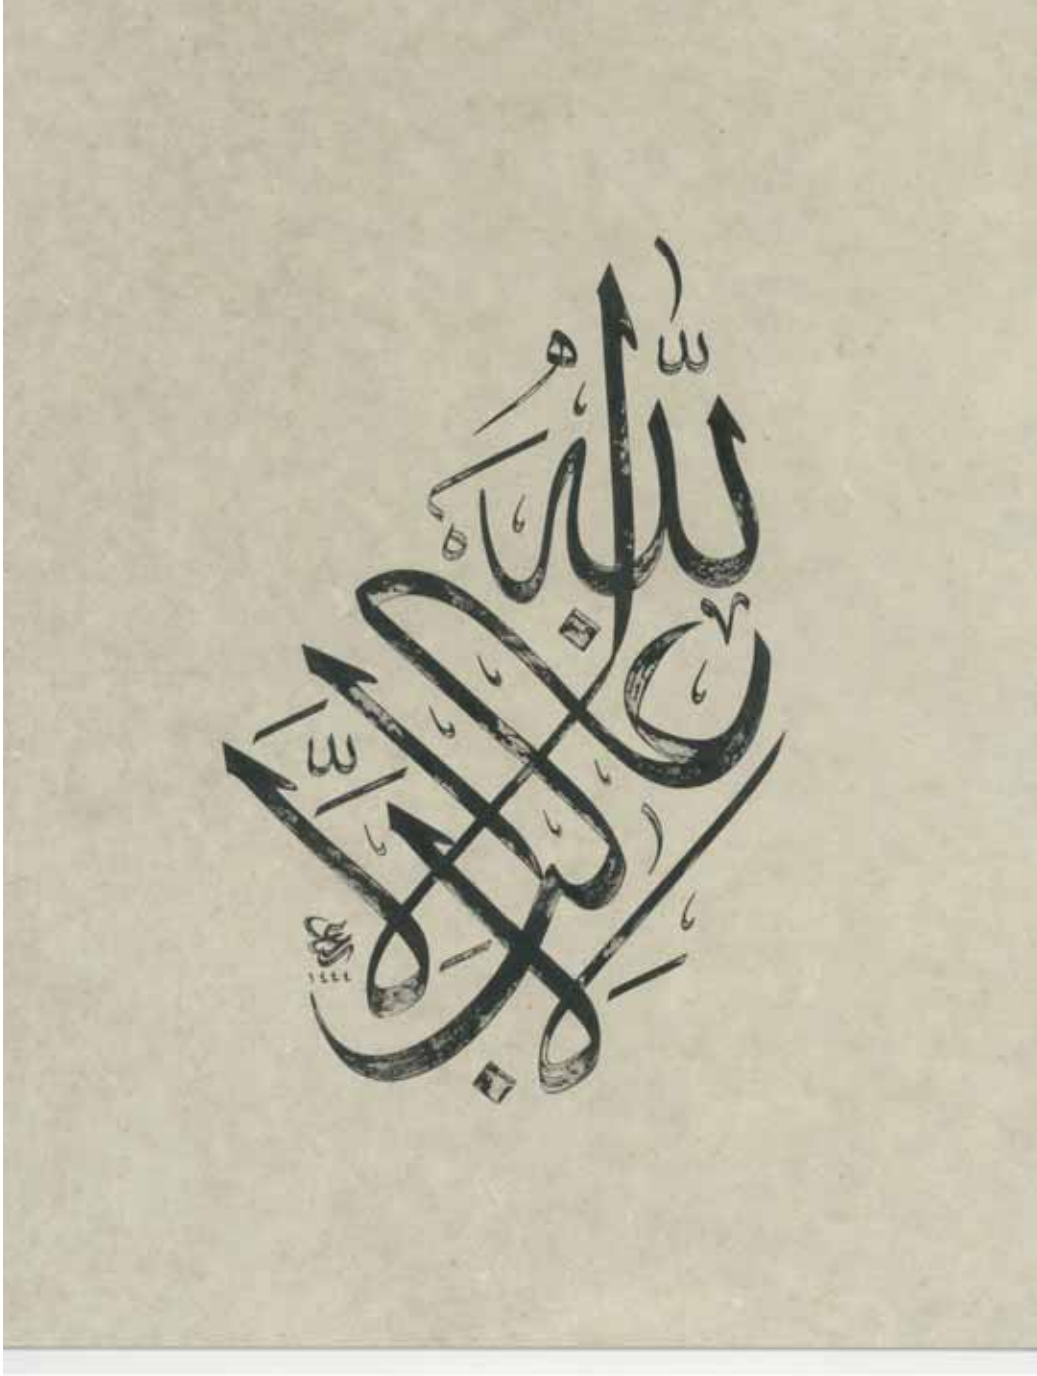 لا غالب إلا الله
١٤٤٤